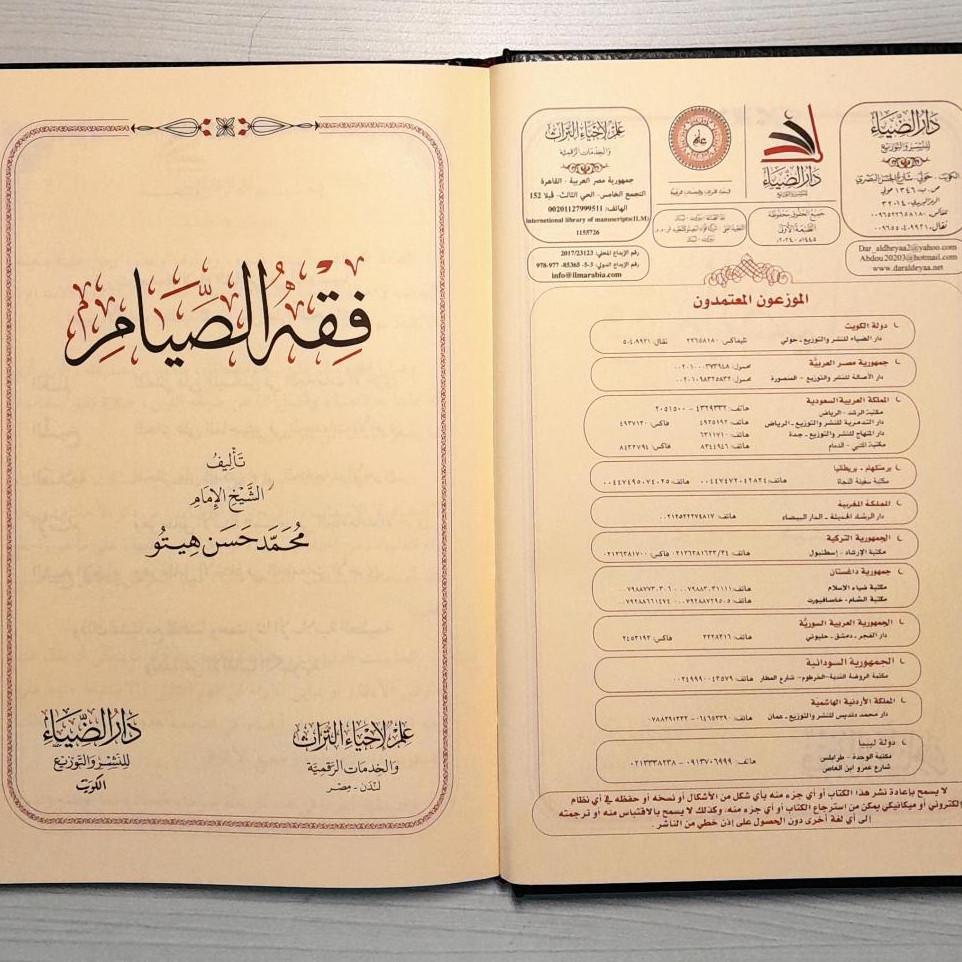 دار الضياء
للنشر والتوزيع
الكويت - حولي - شارع الحسن البصري
ص. ب: ١٣٤٦ حولي
الرمز البريدي: ٣٢٠١٤
تلفاكس: ٠٠٩٦٥٢٢٦٥٨١٨٠
نقال: ٠٠٩٦٥٥٠٤٠٩٩٢١
Dar_aldheyaa2@yahoo.com
Abdou20203@hotmail.com
www.daraldeyaa.net
دار الضياء
للنشر والتوزيع
جميع الحقوق محفوظة
الطبعة الأولى
١٤٤٥هـ - ٢٠٢٤م
علم
علم لإحياء التراث
والخدمات الرقمية
جمهورية مصر العربية - القاهرة
التجمع الخامس- الحي الثالث- ڤيلا 152
الهاتف: 00201127999511
International library of manuscripts(ILM)
1155726
رقم الإيداع المحلي: 2017/23123
رقم الإيداع الدولي: 3-5-85365-977-978
info@ilmarabia.com
الموزعون المعتمدون
دولة الكويت
دار الضياء للنشر والتوزيع - حولي تليفاكس: ٢٢٦٥٨١٨٠ نقال: ٥٠٤٠٩٩٢١
جمهورية مصر العربية
محمول: ٠٠٢٠١٠٠٠٣٧٣٩٤٨
دار الأصالة للنشر والتوزيع - المنصورة محمول: ٠٠٢٠١٠٩٨٣٢٥٨٣٢
المملكة العربية السعودية
مكتبة الرشد - الرياض هاتف: ٤٣٢٩٣٣٢ - ٢٠٥١٥٠٠
دار التدمرية للنشر والتوزيع - الرياض هاتف: ٤٩٢٥١٩٢ فاكس: ٤٩٣٧١٣٠
دار المنهاج للنشر والتوزيع - جدة هاتف: ٦٣١١٧١٠
مكتبة المتنبي - الدمام هاتف: ٨٣٤٤٩٤٦ فاكس: ٨٤٣٢٧٩٤
برمنكهام - بريطانيا
مكتبة سفينة النجاة هاتف: ٠٠٤٤٧٤٧٢٠٤٢٨٢٤ هاتف: ٠٠٤٤٧٤٩٥٠٧٤٠٢٥
المملكة المغربية
دار الرشاد الحديثة - الدار البيضاء هاتف: ٠٠٢١٢٥٢٢٢٧٤٨١٧
الجمهورية التركية
مكتبة الإرشاد - إسطنبول هاتف: ٠٢١٢٦٣٨١٦٣٣/٣٤ فاكس: ٠٢١٢٦٣٨١٧٠٠
جمهورية داغستان
مكتبة ضياء الإسلام
مكتبة الشام - خاسافيورت
الجمهورية العربية السورية
دار الفجر - دمشق - حلبوني هاتف: ٢٢٢٨٣١٦ فاكس: ٢٤٥٣١٩٣
الجمهورية السودانية
مكتبة الروضة الندية - الخرطوم - شارع المطار هاتف: ٠٠٢٤٩٩٩٠٠٤٣٥٧٩
المملكة الأردنية الهاشمية
دار محمد دنديس للنشر والتوزيع - عمان هاتف: ٠٦٤٦٥٣٣٩٠ - ٠٧٨٨٢٩١٣٣٢
دولة ليبيا
مكتبة الوحدة - طرابلس هاتف: ٠٩١٣٧٠٦٩٩٩ - ٠٢١٣٣٣٨٢٣٨
شارع عمرو ابن العاص
لا يسمح بإعادة نشر هذا الكتاب أو أي جزء منه بأي شكل من الأشكال أو نسخه أو حفظه في أي نظام
إلكتروني أو ميكانيكي يمكن من استرجاع الكتاب أو أي جزء منه، وكذلك لا يسمح بالاقتباس منه أو ترجمته
إلى أي لغة أخرى دون الحصول على إذن خطي من الناشر.
فِقْهُ الصِّيَامِ
تأليف
الشيخ الإمام
محمد حسن هيتو
علم لإحياء التراث
والخدمات الرقمية
لندن - مصر
دار الضياء
للنشر والتوزيع
الكويت